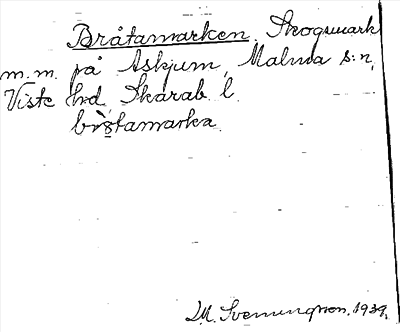 Bråtamarken. Skogsmark
m.m. på Askjum, Malma s:n,
Viste hd, Skarab. l.
bråtamarka.
M. Svenungsson. 1939.